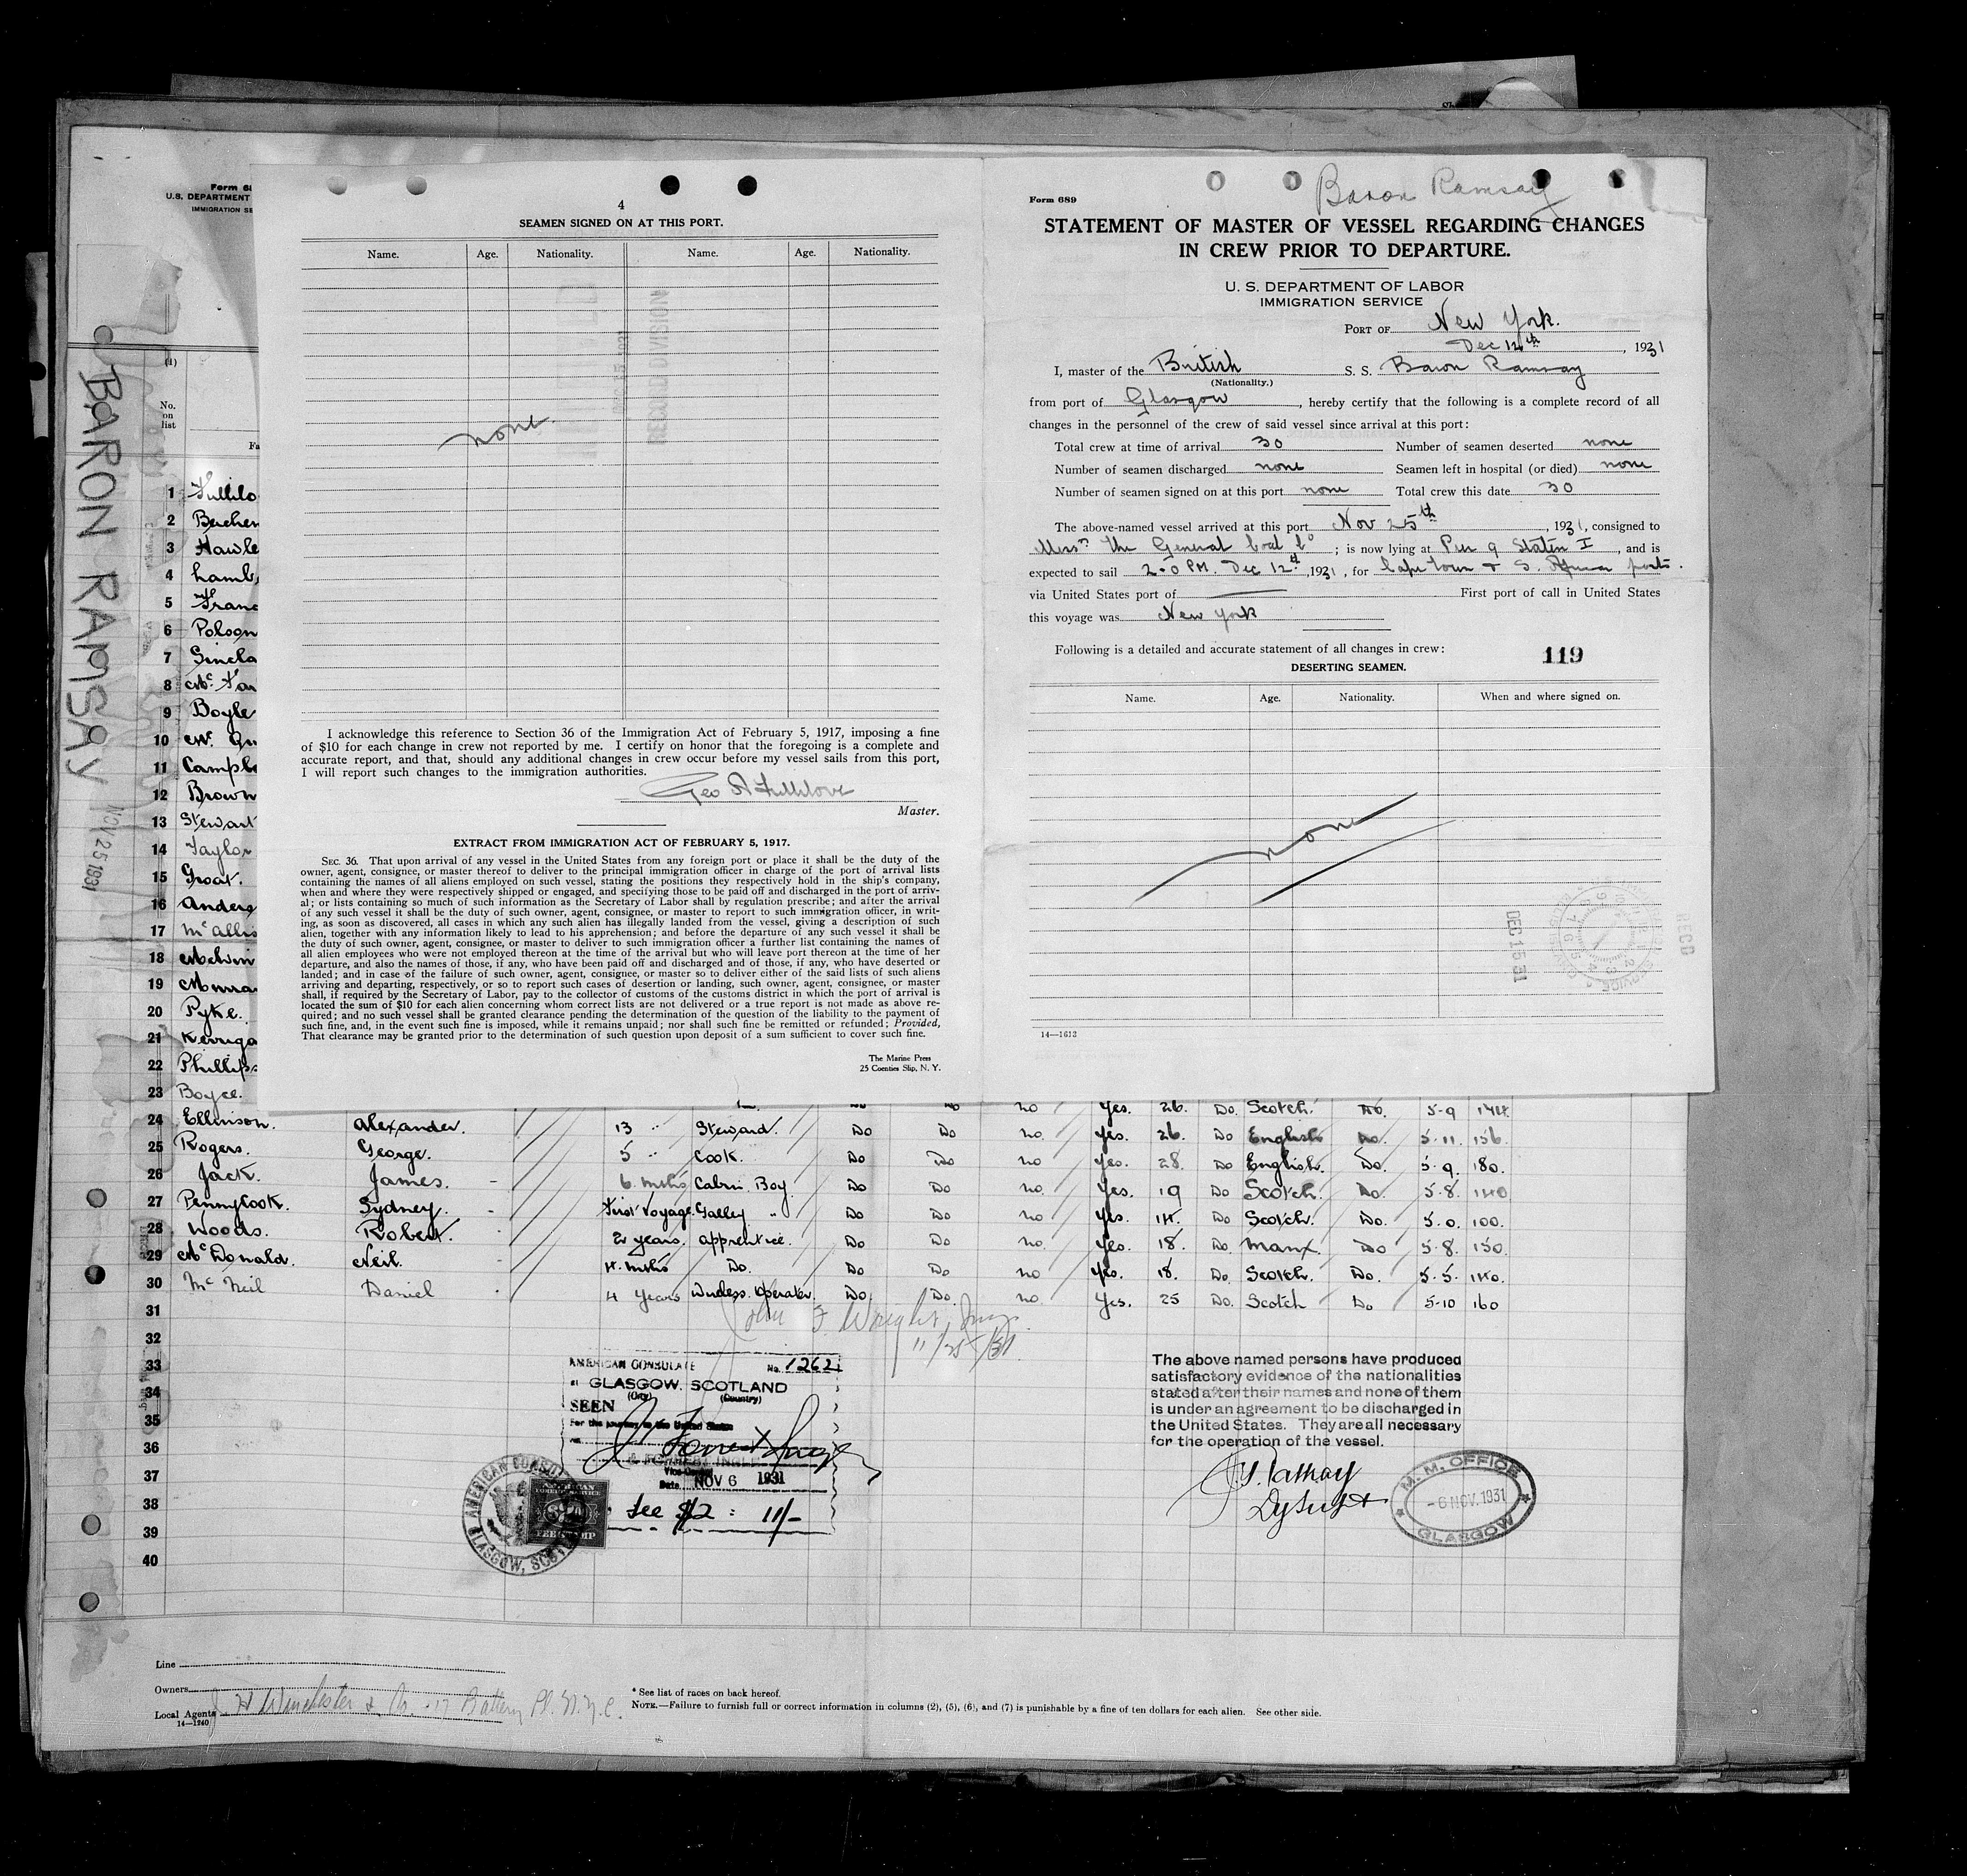 4
SEAMEN SIGNED ON AT THIS PORT.
Name. Age. Nationality. Name. Age. Nationality.
none.
I acknowledge this reference to Section 36 of the Immigration Act of February 5, 1917, imposing a fine
of $10 for each change in crew not reported by me. I certify on honor that the foregoing is a complete and
accurate report, and that, should any additional changes in crew occur before my vessel sails from this port,
I will report such changes to the immigration authorities.
Geo A Fullilove
Master.
EXTRACT FROM IMMIGRATION ACT OF FEBRUARY 5, 1917.
SEC. 36. That upon arrival of any vessel in the United States from any foreign port or place it shall be the duty of the
owner, agent, consignee, or master thereof to deliver to the principal immigration officer in charge of the port of arrival lists
containing the names of all aliens employed on such vessel, stating the positions they respectively hold in the ship's company,
when and where they were respectively shipped or engaged, and specifying those to be paid off and discharged in the port of arriv-
al; or lists containing so much of such information as the Secretary of Labor shall by regulation prescribe; and after the arrival
of any such vessel it shall be the duty of such owner, agent, consignee, or master to report to such immigration officer, in writ-
ing, as soon as discovered, all cases in which any such alien has illegally landed from the vessel, giving a description of such
alien, together with any information likely to lead to his apprehension; and before the departure of any such vessel it shall be
the duty of such owner, agent, consignee, or master to deliver to such immigration officer a further list containing the names of
all alien employees who were not employed thereon at the time of the arrival but who will leave port thereon at the time of her
departure, and also the names of those, if any, who have been paid off and discharged and of those, if any, who have deserted or
landed; and in case of the failure of such owner, agent, consignee, or master so to deliver either of the said lists of such aliens
arriving and departing, respectively, or so to report such cases of desertion or landing, such owner, agent, consignee, or master
shall, if required by the Secretary of Labor, pay to the collector of customs of the customs district in which the port of arrival is
located the sum of $10 for each alien concerning whom correct lists are not delivered or a true report is not made as above re-
quired; and no such vessel shall be granted clearance pending the determination of the question of the liability to the payment of
such fine, and, in the event such fine is imposed, while it remains unpaid; nor shall such fine be remitted or refunded; Provided,
That clearance may be granted prior to the determination of such question upon deposit of a sum sufficient to cover such fine.
The Marine Press
25 Coenties Slip, N. Y.
Baron Ramsay
Form 689
STATEMENT OF MASTER OF VESSEL REGARDING CHANGES
IN CREW PRIOR TO DEPARTURE.
U. S. DEPARTMENT OF LABOR
IMMIGRATION SERVICE
PORT OF New York.
Dec 12th, 1931
I, master of the British S. S. Baron Ramsay
(Nationality.)
from port of Glasgow, hereby certify that the following is a complete record of all
changes in the personnel of the crew of said vessel since arrival at this port:
Total crew at time of arrival 30 Number of seamen deserted none
Number of seamen discharged none Seamen left in hospital (or died) none
Number of seamen signed on at this port none Total crew this date 30
The above-named vessel arrived at this port Nov 25th, 1931, consigned to
Messrs The General Coal Co; is now lying at Pier 9 Staten I, and is
expected to sail 2-0 PM. Dec 12th, 1931, for Cape Town & S. African ports.
via United States port of First port of call in United States
this voyage was New York
Following is a detailed and accurate statement of all changes in crew:
119
DESERTING SEAMEN.
Name. Age. Nationality. When and where signed on.
none
DEC 15 31
RECD
14—1613
U.S. DEPARTMENT
(1)
No.
on
list
BARON RAMSAY
NOV 25 1931
1 Fullilo
2 Buchan
3 Hawle
4 Lamb
5 Franc
6 Polson
7 Sincla
8 Mc Far
9 Boyle
10
11 Campbe
12 Brown
13 Stewart
14 Taylor
15 Groat.
16 Anders
17 McAllis
18 Melvin
19 Murra
20 Pyke.
21 Kerriga
22 Phillips
23 Boyce.
no Yes. 26. Do Scotch. Do. 5-9 144.
24 Ellinson. Alexander. 13 " Steward. Do Do no Yes. 26. Do English Do. 5-11. 156.
25 Rogers. George. 5 " Cook. Do Do no Yes. 28. Do English. Do. 5-9. 180.
26 Jack. James. 6. mths Cabin Boy Do Do no Yes. 19 Do Scotch. Do. 5-8. 140
27 Pennycook. Sydney. First Voyage. Galley " Do Do no Yes. 14. Do Scotch. Do. 5-0. 100.
28 Woods. Robert. 2 years. apprentice. Do Do no. Yes. 18. Do Manx. Do 5-8. 150.
29 McDonald. Neil. 4. mths Do. Do Do no Yes. 18. Do Scotch. Do. 5-5. 140.
30 McNeil Daniel 4 Years Wireless Operator. Do Do. no. Yes. 25 Do. Scotch Do 5-10 160
31
32
33
34
35
36
37
38
39
40
John F. Wright, Insp.
11/25/31
AMERICAN CONSULATE No. 1262
at GLASGOW. SCOTLAND
(City) (Country)
SEEN
For the journey to the United States
Vice-Consul
Date NOV 6 1931
Fee $2 = 11/-
AMERICAN CONSUL
GLASGOW, SCOTLAND
The above named persons have produced
satisfactory evidence of the nationalities
stated after their names and none of them
is under an agreement to be discharged in
the United States. They are all necessary
for the operation of the vessel.
Dy Supt
M. M. OFFICE
-6 NOV. 1931
GLASGOW
Line
Owners
Local Agents J. H Winchester & Co. 17 Battery Pl. N.Y.C.
14—1240
* See list of races on back hereof.
NOTE.—Failure to furnish full or correct information in columns (2), (5), (6), and (7) is punishable by a fine of ten dollars for each alien. See other side.